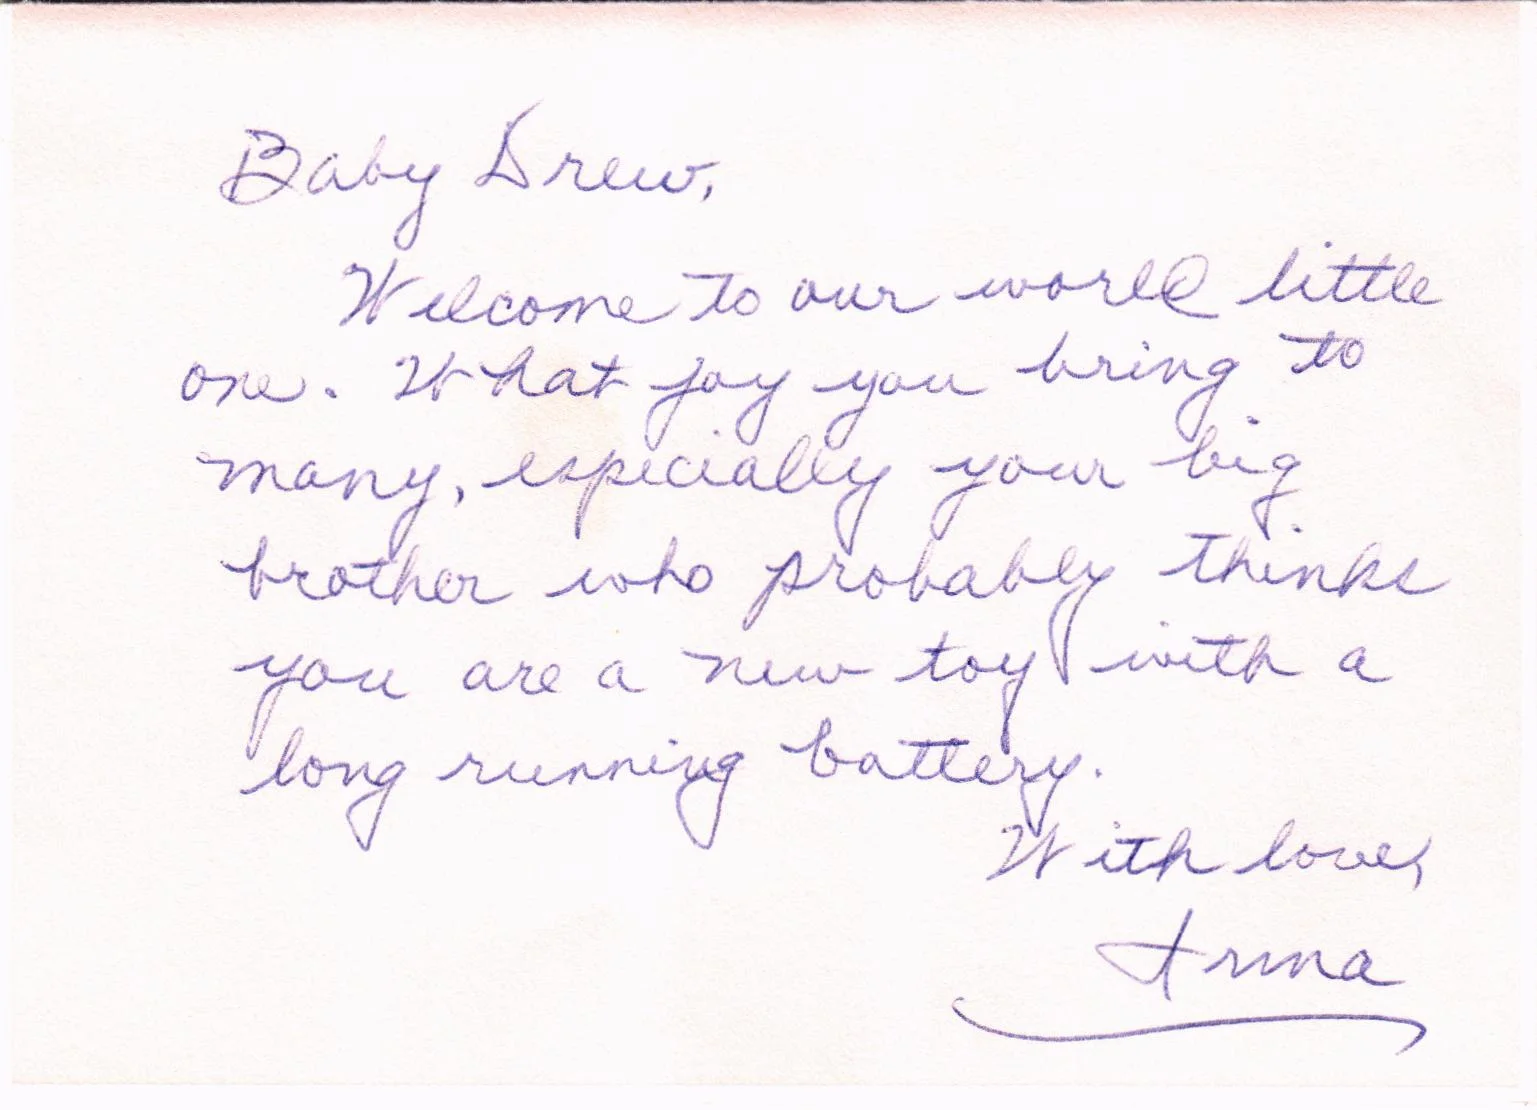 Baby Drew,
Welcome to our world little
one. What joy you bring to
many, especially your big
brother who probably thinks
you are a new toy with a
long running battery.
With love,
Irina